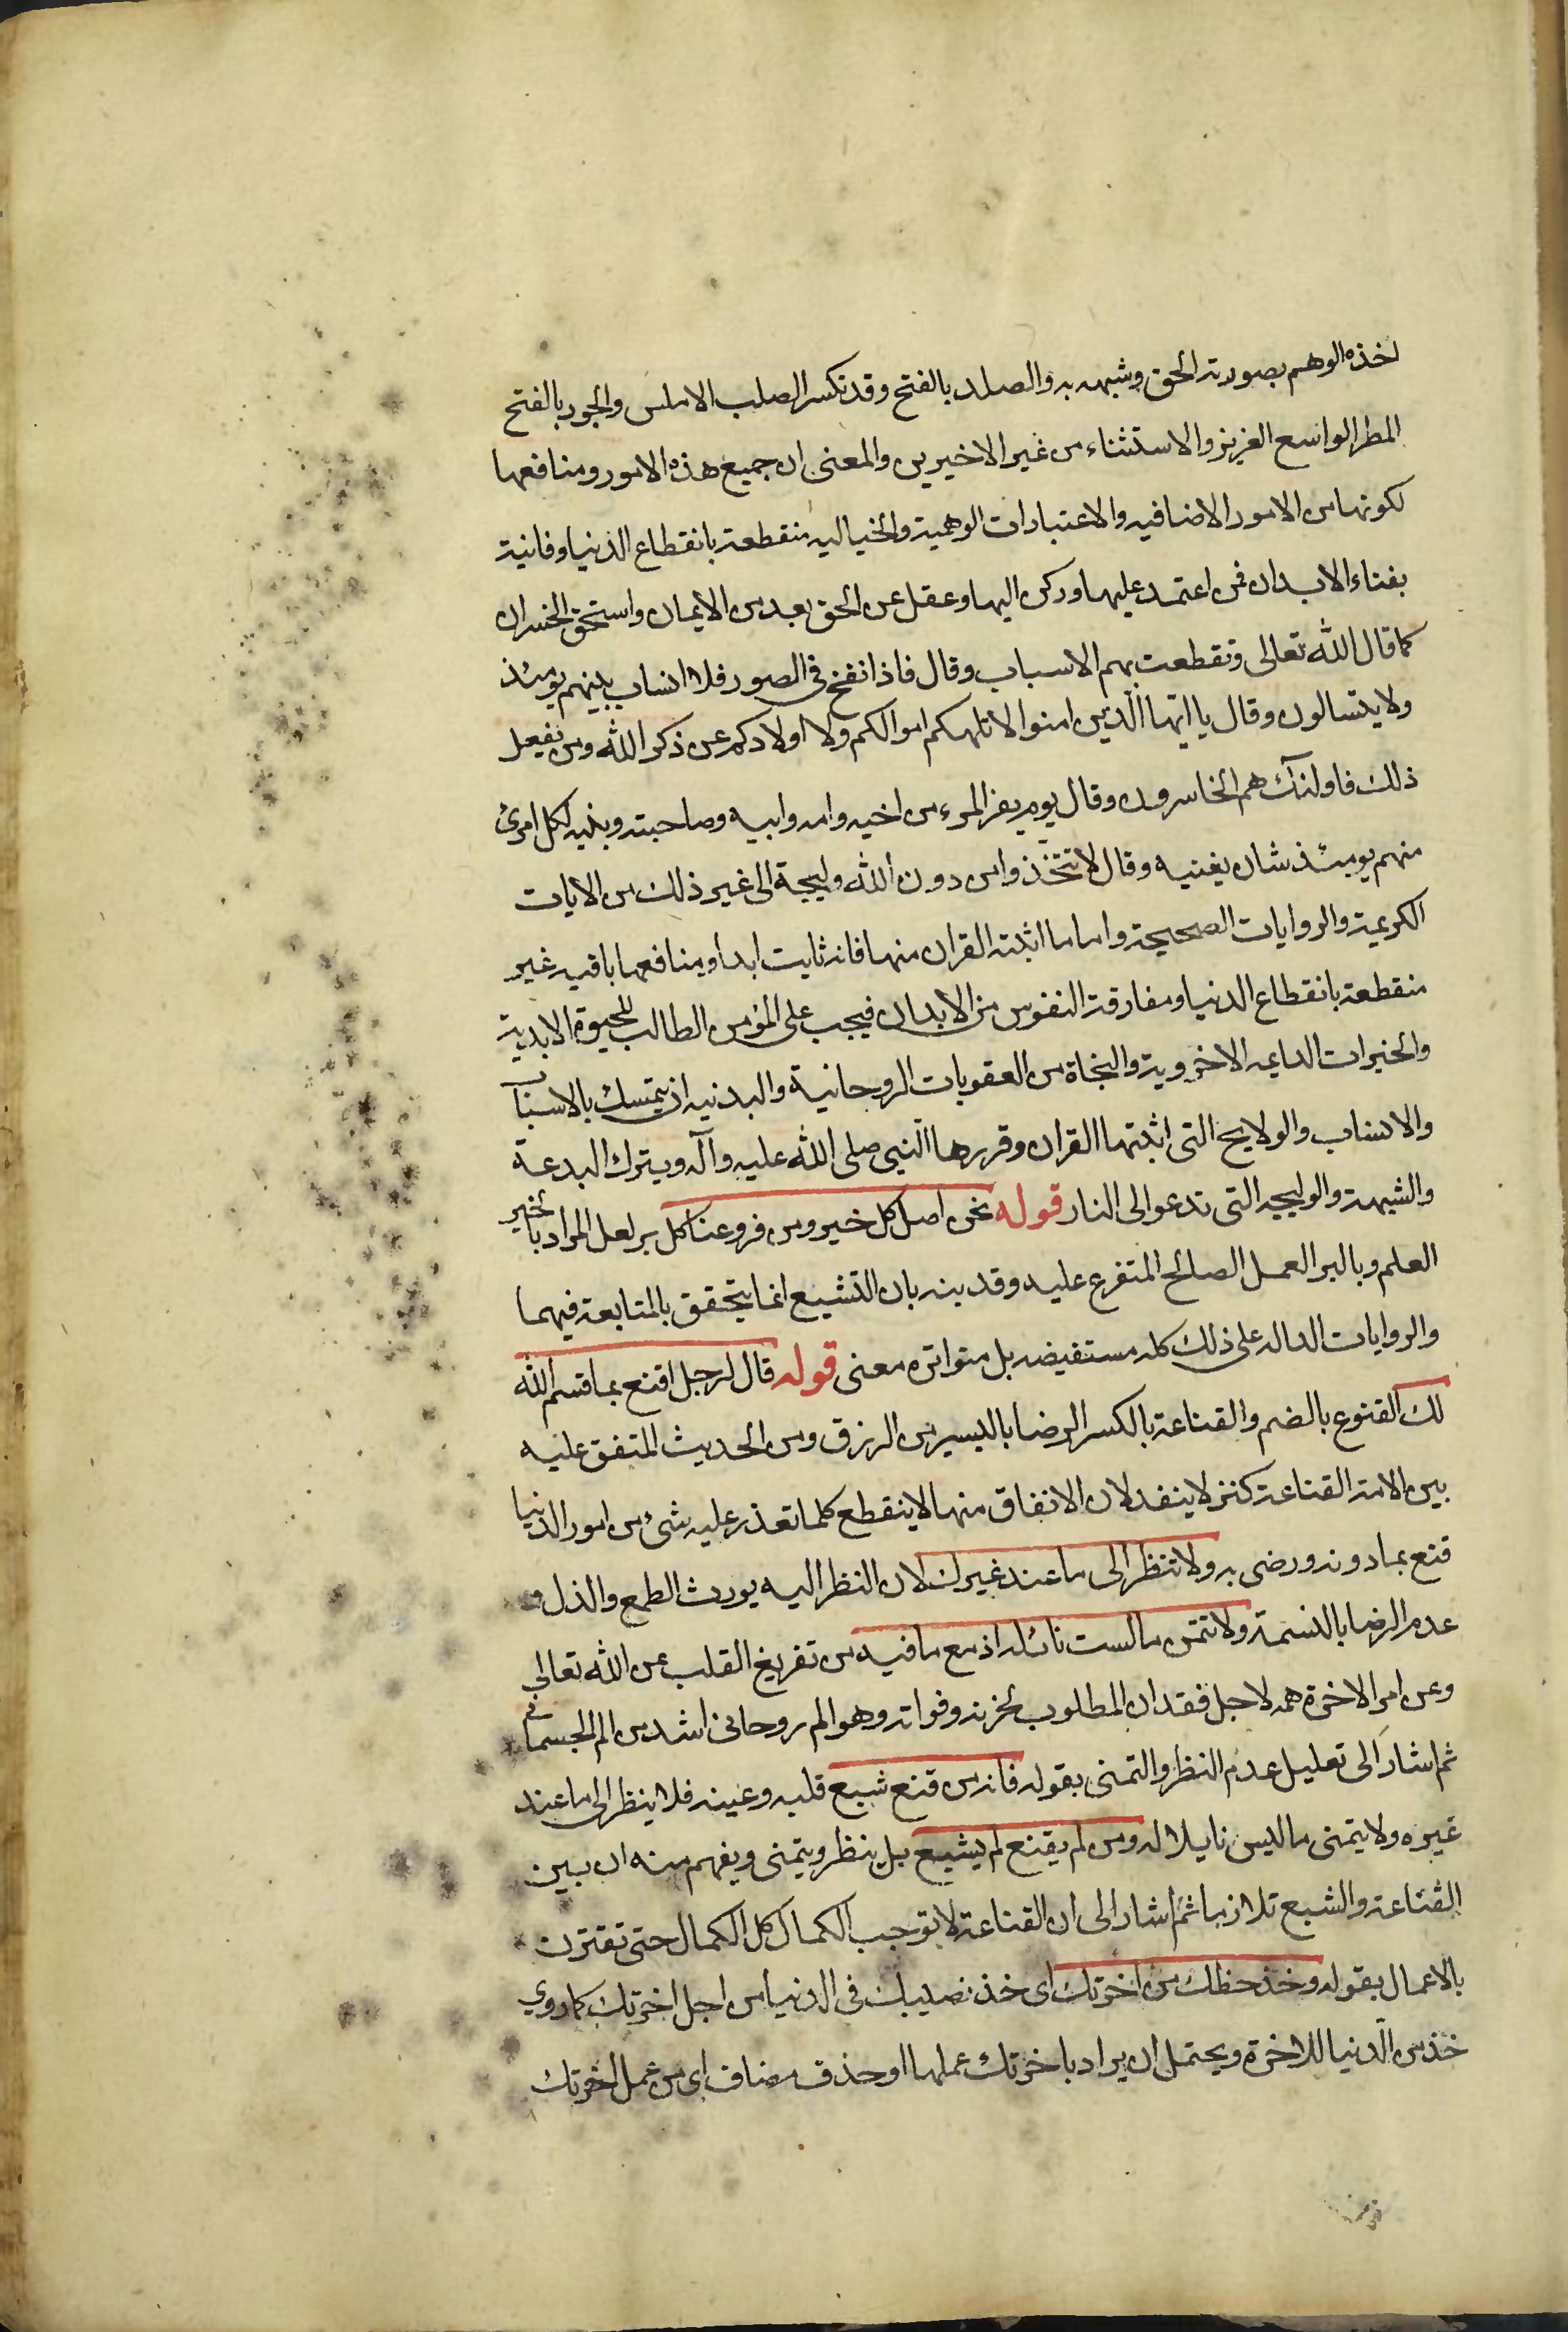 اخذه الوهم بصورته الحق وشبهه به والصلد بالفتح وقد تكسر الصلب الاملس والجود بالفتح
المطر الواسع الغزير والاستثناء من غير الاخيرين والمعنى ان جميع هذه الامور ومنافعها
لكونها من الامور الاضافيه والاعتبارات الوهمية والخياليه منقطعة بانقطاع الدنيا وفانية
بفناء الابدان فمن اعتمد عليها وركن اليها وعقل عن الحق بعد من الايمان واستحق الخسران
كما قال الله تعالى وتقطعت بهم الاسباب وقال فاذا نفخ في الصور فلا انساب بينهم يومئذ
ولا يتسالون وقال يا ايها الّذين امنوا لا تلهكم اموالكم ولا اولادكم عن ذكر الله ومن يفعل
ذلك فاولئك هم الخاسرون وقال يوم يفر المرء من اخيه وامه وابيه وصاحبته وبنيه لكل امرئ
منهم يومئذ شان يغنيه وقال لا تتّخذوا من دون الله وليجة الى غير ذلك من الايات
الكريمة والروايات الصحيحة واما ما اثبته القران منها فانه ثابت ابدا ومنافعها باقيه غير
منقطعة بانقطاع الدنيا ومفارقة النفوس من الابدان فيجب على المؤمن الطالب للحيوة الابدية
والخيرات الدايمه الاخروية والنجاة من العقوبات الروحانية والبدنيه ان يتمسك بالاسباب
والانساب والولايج التى اثبتها القران وقررها النبي صلى الله عليه وآله ويترك البدعة
والشبهة والوليجه التى تدعو الى النار قوله نحن اصل كل خير ومن فروعنا كل بر لعل المراد بالخير
العلم وبالبر العمل الصالح المتفرع عليه وقد ينه بان التشيع انما يتحقق بالمتابعة فيهما
والروايات الداله على ذلك كله مستفيضه بل متواتره معنى قوله قال لرجل اقنع بما قسم الله
لك القنوع بالضم والقناعة بالكسر الرضا باليسير من الرزق ومن الحديث المتفق عليه
بين الامة القناعة كنز لا ينفد لان الانفاق منها لا ينقطع كلما تعذر عليه شئ من امور الدنيا
قنع بما دونه ورضى به ولا تنظر الى ما عند غيرك لان النظر اليه يورث الطمع والذل و
عدم الرضا بالقسمة ولا تتمن ما لست نائله اذ مع ما فيه من تفريغ القلب عن الله تعالى
وعن امر الاخرة همه لاجل فقدان المطلوب يحزنه وفواته وهو الم روحانى اشد من الم الجسمانى
ثم اشار الى تعليل عدم النظر والتمنى بقوله فانه من قنع شبع قلبه وعينه فلا ينظر الى ما عند
غيره ولا يتمنى ما ليس نايلا له ومن لم يقنع لم يشبع بل ينظر ويتمنى ويفهم منه ان بين
القناعة والشبع تلازما ثم اشار الى ان القناعة لا توجب الكمال كل الكمال حتى تقترن
بالاعمال بقوله وخذ حظك من اخرتك اى خذ نصيبك فى الدنيا من اجل اخرتك كما روي
خذ من الدنيا للاخرة ويحتمل ان يراد باخرتك عملها او حذف مضاف اى من عمل اخرتك